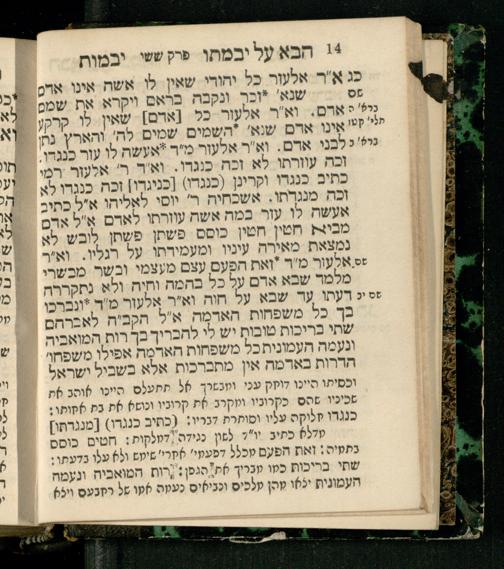 14 הבא על יבמתו פרק ששי יבמות
כג א״ר אלעזר כל יהודי שאין לו אשה אינו אדם
שם שנא׳ *זכר ונקבה בראם ויקרא את שמם
ברא׳ ה אדם. וא״ר אלעזר כל [אדם] שאין לו קרקע
תלי׳ קטו אינו אדם שנא׳ *השמים שמים לה׳ והארץ נתן
ברא׳ ב לבני אדם. וא״ר אלעזר מ״ד *אעשה לו עזר כנגדו.
זכה עוזרתו לא זכה כנגדו. וא״ד ר׳ אלעזר רמי
כתיב כנגדו וקרינן (כנגדו) [כניגדו] זכה כנגדו לא
זכה מנגדתו. אשכחיה ר׳ יוסי לאליהו א״ל כתיב
אעשה לו עזר במה אשה עוזרתו לאדם א״ל אדם
מביא חטין חטין כוסס פשתן פשתן לובש לא
נמצאת מאירה עיניו ומעמידתו על רגליו. וא״ר
שם אלעזר מ״ד *זאת הפעם עצם מעצמי ובשר מבשרי
מלמד שבא אדם על כל בהמה וחיה ולא נתקררה
שם יב דעתו עד שבא על חוה וא״ר אלעזר מ״ד *ונברכו
בך כל משפחות האדמה א״ל הקב״ה לאברהם
שתי בריכות טובות יש לי להבריך בך רות המואביה
ונעמה העמונית כל משפחות האדמה אפילו משפחו׳
הדרות באדמה אין מתברכות אלא בשביל ישראל
וכסיתו היינו דוחק עני ומבשרך אל תתעלם היינו אוהב את
שכיניו שהם כקרוביו ומקרב את קרוביו ונושא את בת אחותו:
כנגדו חלוקה עליו וסותרת דבריו: (כתיב כנגדו) [מנגדתו]
מדלא כתיב יו״ד לשון נגידה דמלקות: חטים כוסס
בתמיה: זאת הפעם מכלל דפעמי׳ אחרי׳ שימש ולא עלו בדעתו:
שתי בריכות כמו מבריך את הגפן: רות המואביה ונעמה
העמונית יצאו מהן מלכים ונביאים נעמה אמו של רחבעם ויצא